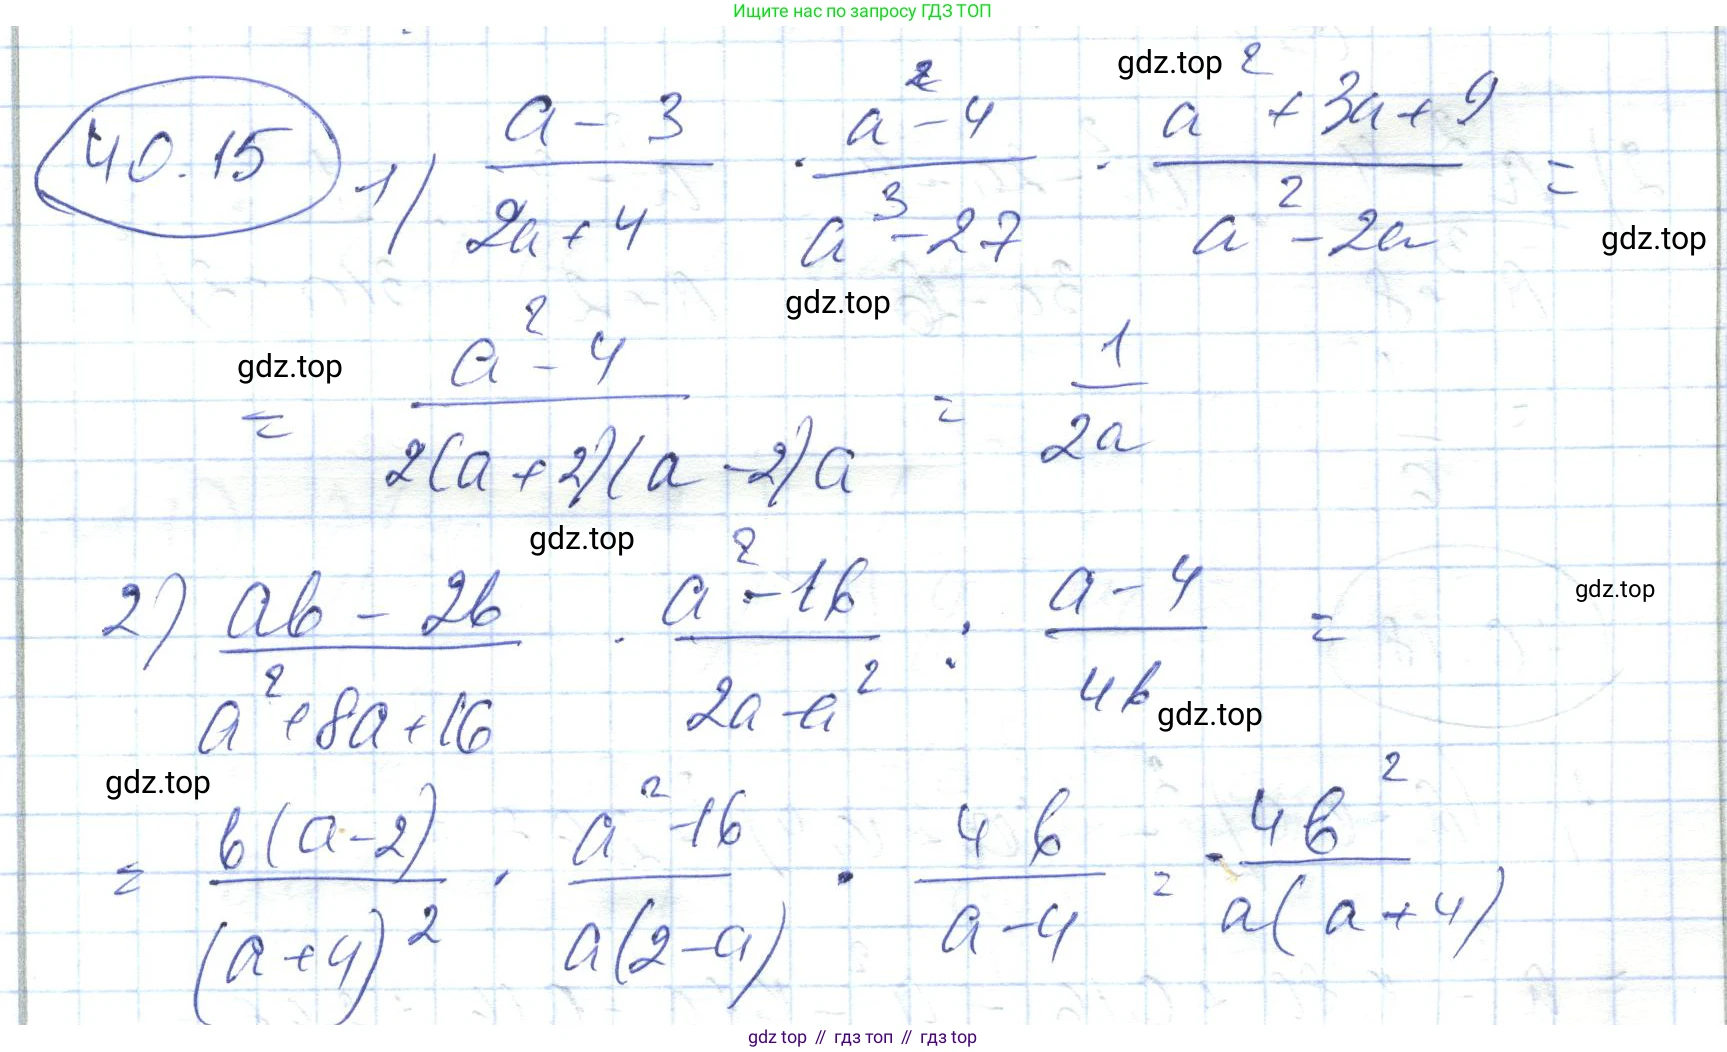 Ищите нас по запросу ГДЗ ТОП
gdz.top
40.15 1) (a - 3)/(2a + 4) · (a² - 4)/(a³ - 27) · (a² + 3a + 9)/(a² - 2a) =
gdz.top
gdz.top
gdz.top
= (a² - 4)/(2(a + 2)(a - 2)a) = 1/(2a)
gdz.top
2) (ab - 2b)/(a² + 8a + 16) · (a² - 16)/(2a - a²) : (a - 4)/(4b) =
gdz.top
gdz.top
gdz.top
= (b(a - 2))/((a + 4)²) · (a² - 16)/(a(2 - a)) · (4b)/(a - 4) = - (4b²)/(a(a + 4))
gdz top // гдз топ // gdz top